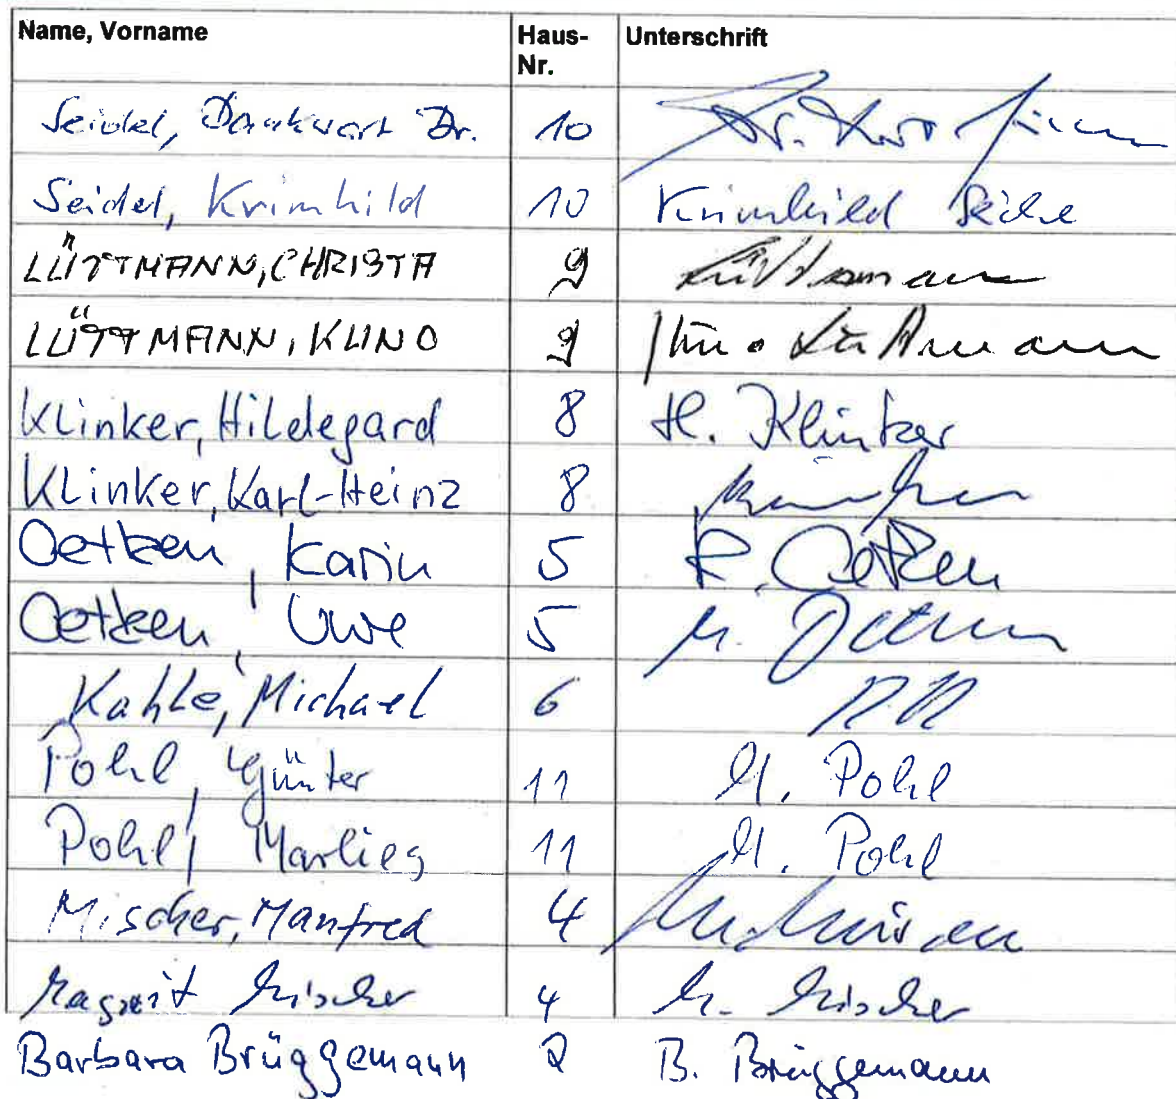 Name, Vorname Haus-Nr. Unterschrift
Seidel, Dankwart Dr. 10 Dr.
Seidel, Krimhild 10 Krimhild Seidel
LÜTTMANN, CHRISTA 9 Lüttmann
LÜTTMANN, KUNO 9 Kuno Lüttmann
Klinker, Hildegard 8 H. Klinker
Klinker, Karl-Heinz 8
Oetken, Karin 5 K. Oetken
Oetken, Uwe 5 Oetken
Kahle, Michael 6
Pohl, Günter 11 Pohl
Pohl, Marlies 11 M. Pohl
Mischer, Manfred 4
Magreit Mischer 4 M. Mischer
Barbara Brüggemann 2 B. Brüggemann